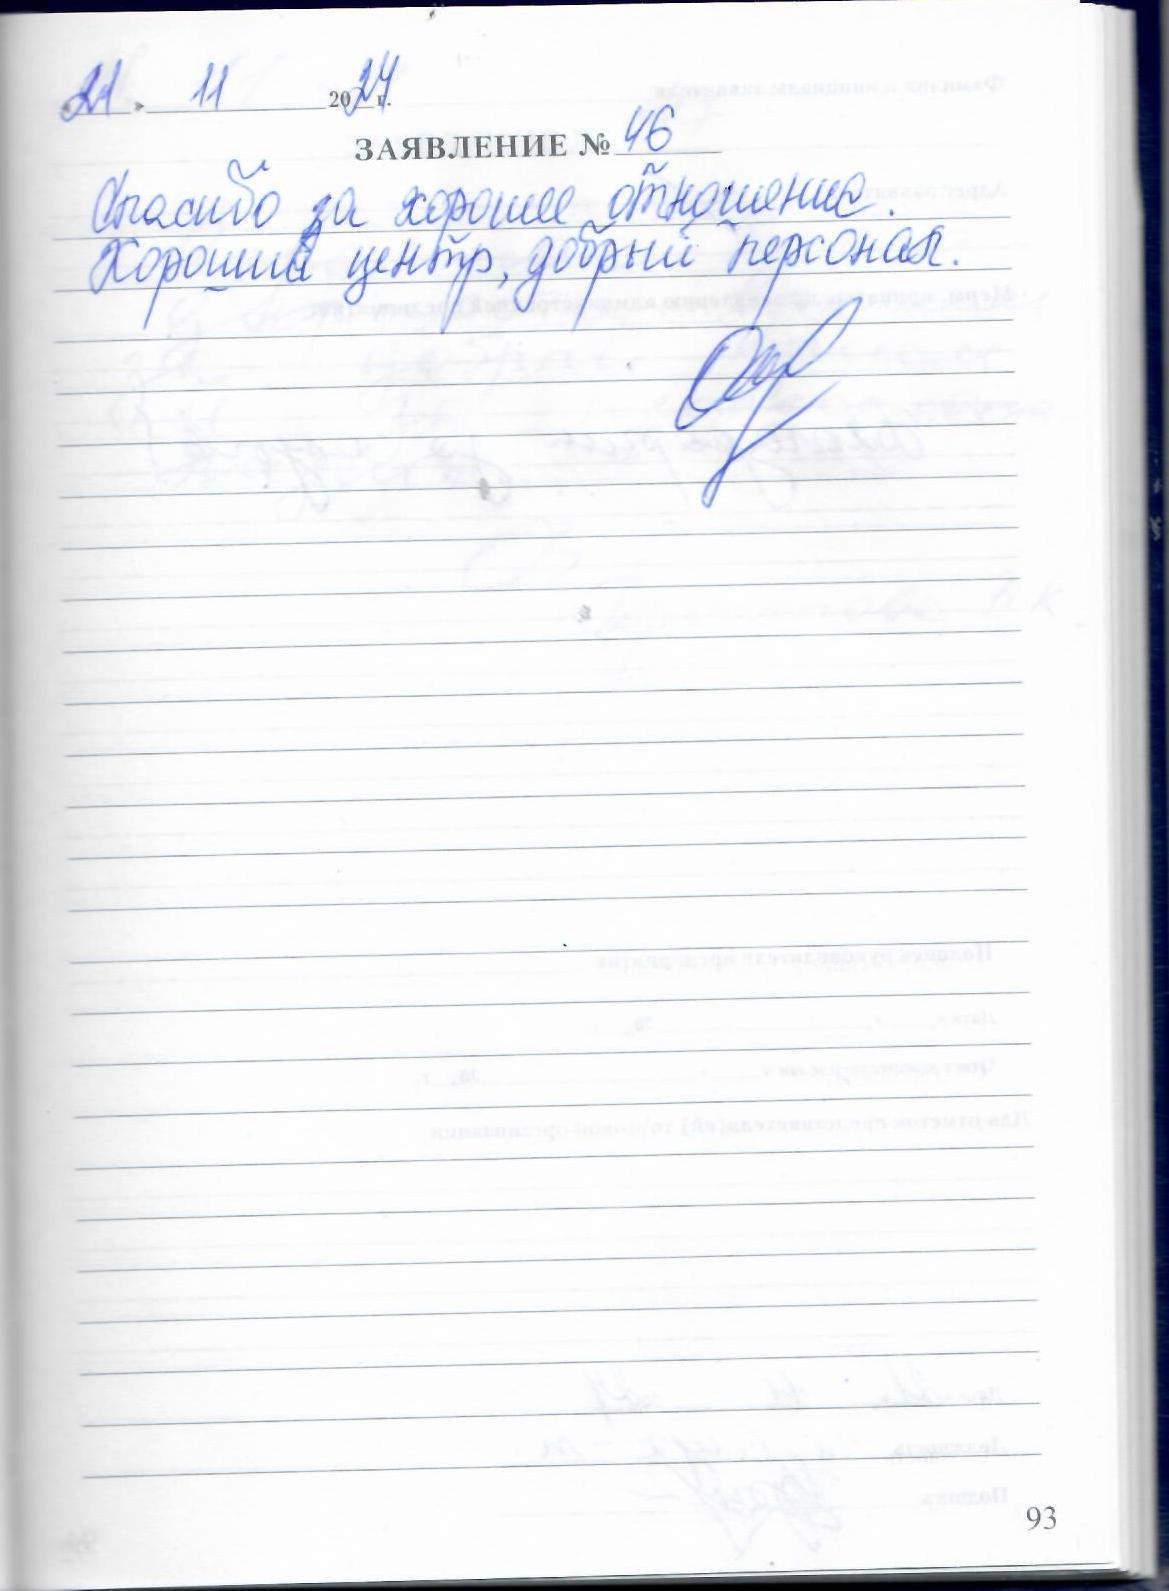 «21» 11 2024 г.
ЗАЯВЛЕНИЕ № 46
Спасибо за хорошее отношение.
Хороший центр, добрый персонал.
93